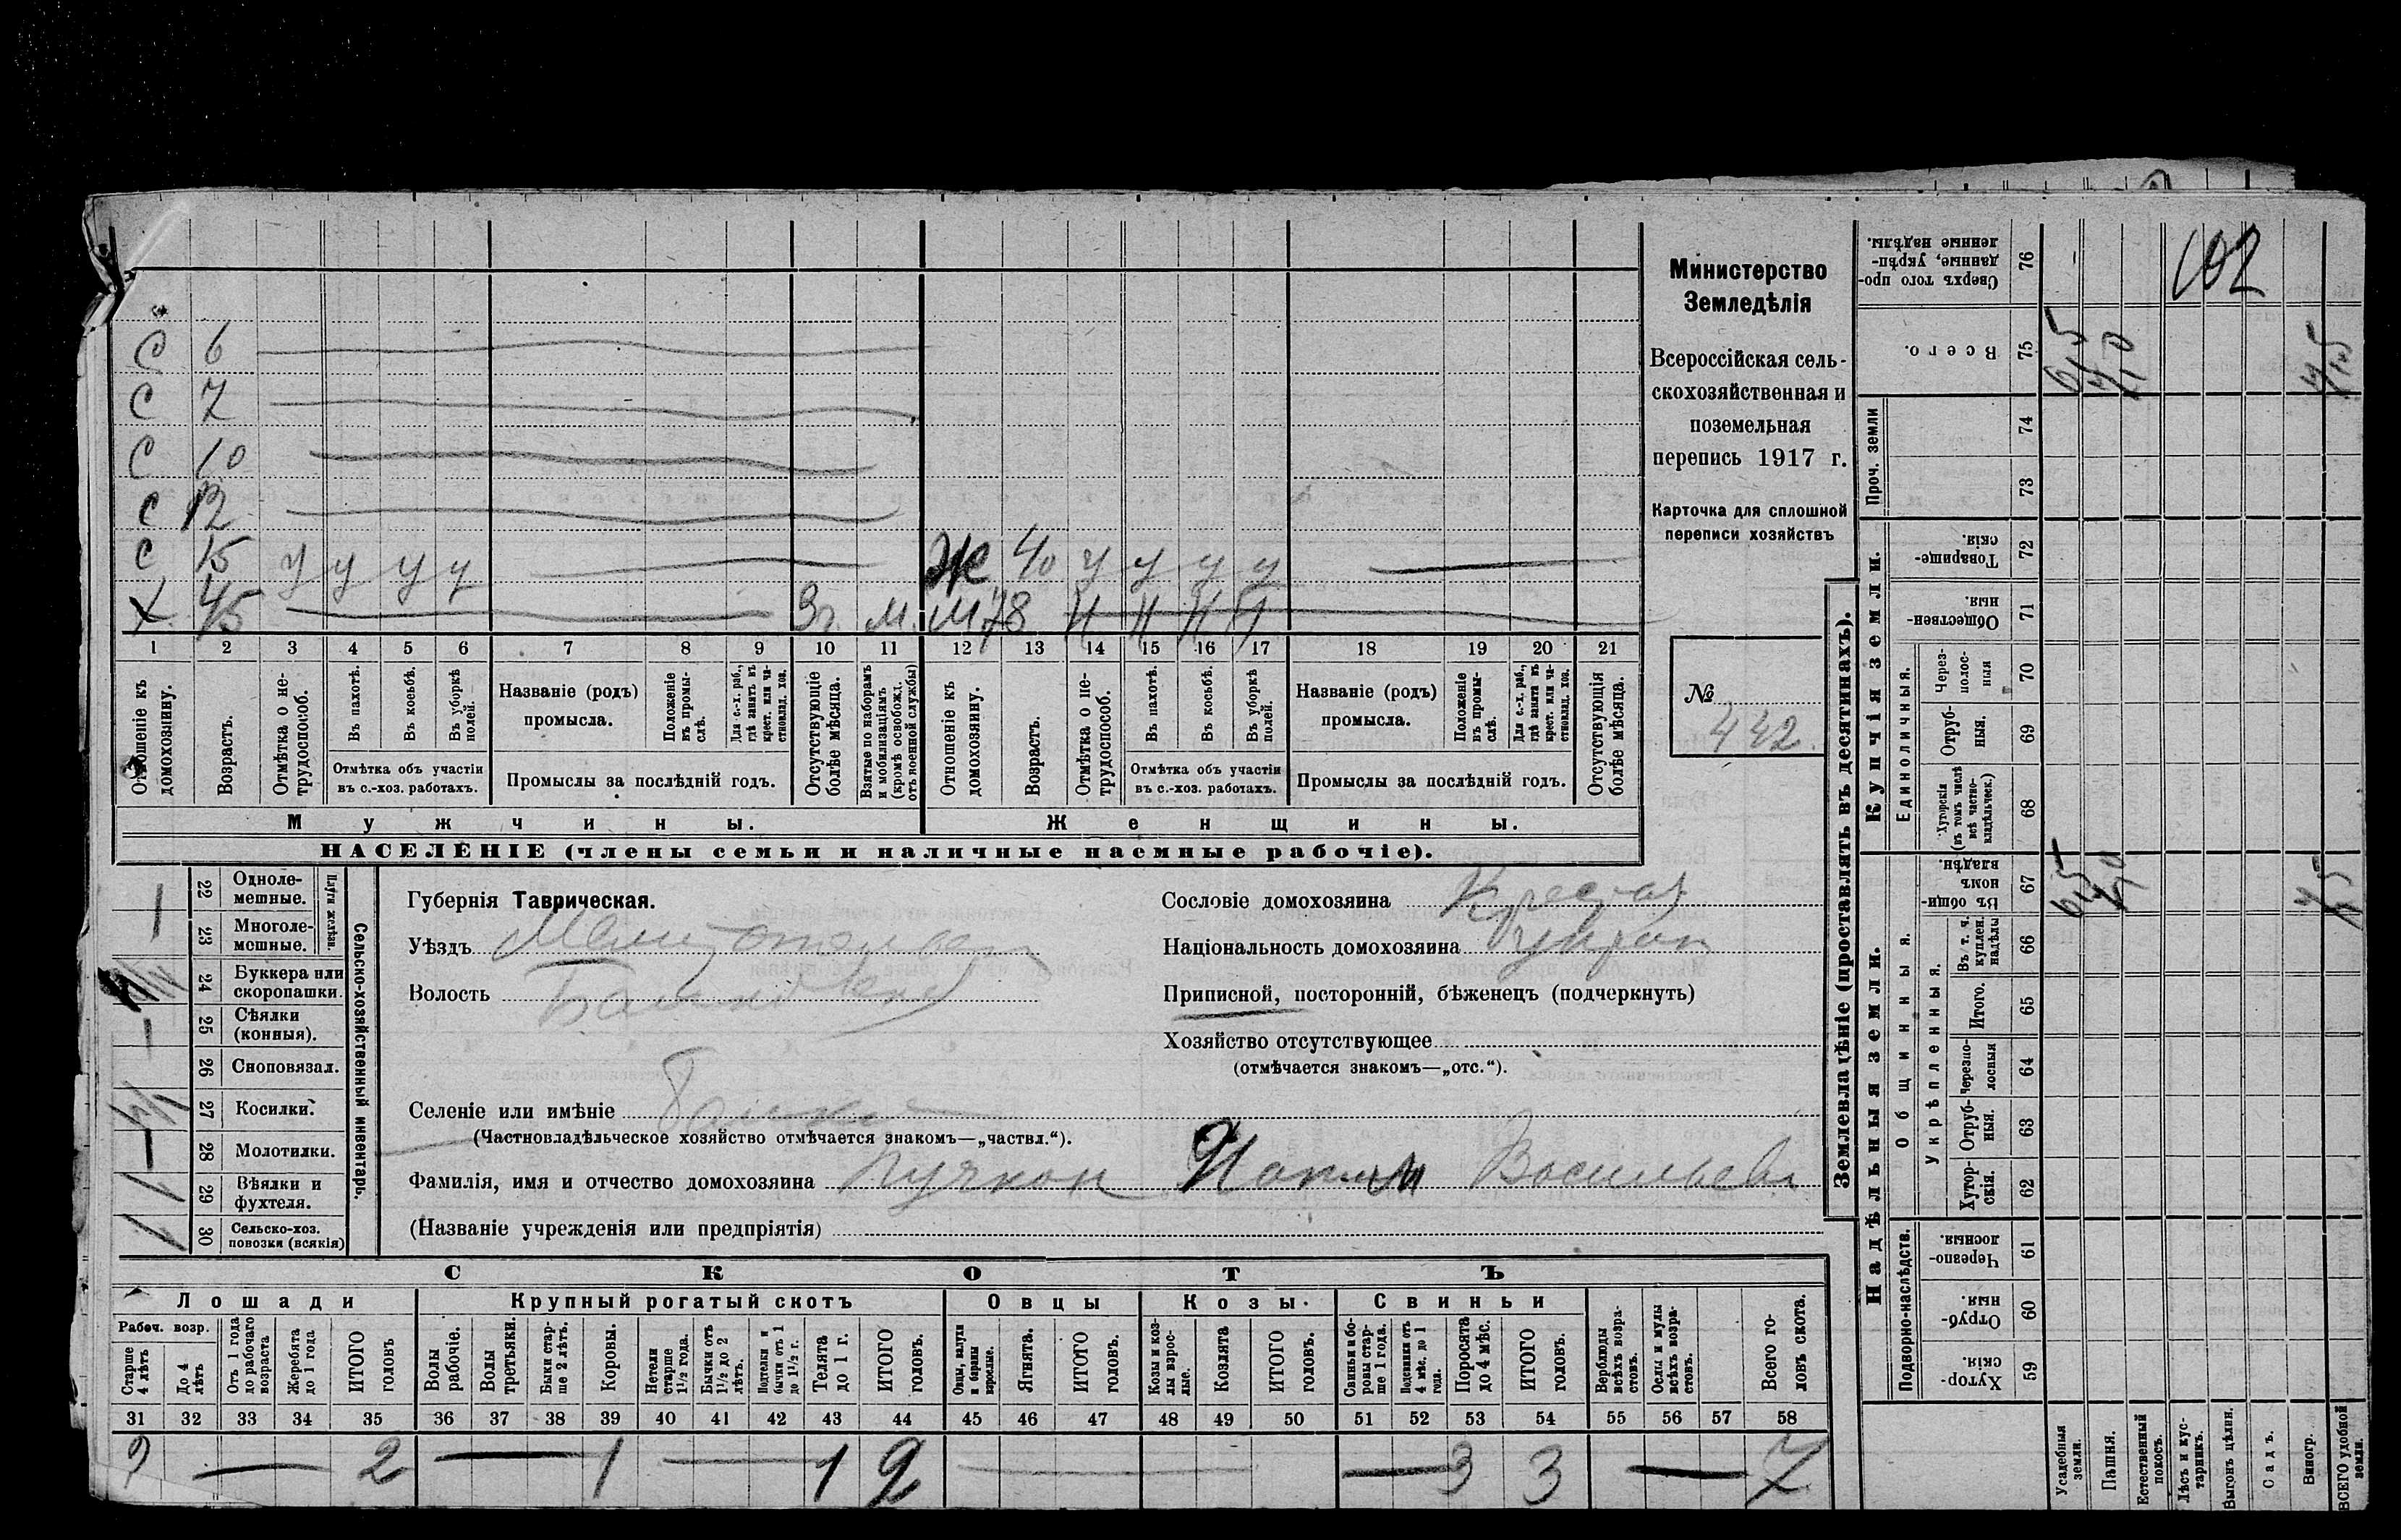 Министерство
Земледѣлія
Всероссійская сель-
скохозяйственная и
поземельная
перепись 1917 г.
Карточка для сплошной
переписи хозяйствъ
№
442.
С 6
С 7
С 10
С 12
С 15 у у у у
Х 45 3г. м.
Ж 40 у у у у
М 78 н н н н
1 2 3 4 5 6 7 8 9 10 11 12 13 14 15 16 17 18 19 20 21
Отношеніе къ домохозяину.
Возрастъ.
Отмѣтка о не-трудоспособ.
Въ пахотѣ.
Въ косьбѣ.
Въ уборкѣ полей.
Отмѣтка объ участіи
въ с.-хоз. работахъ.
Названіе (родъ)
промысла.
Положеніе въ промы-слѣ.
Для с.-х. раб., гдѣ занятъ въ крест. или ча-стновлад. хоз.
Промыслы за послѣдній годъ.
Отсутствующіе болѣе мѣсяца.
Взятые по наборамъ и мобилизаціямъ (кромѣ освобожд. отъ военной службы)
Отношеніе къ домохозяину.
Возрастъ.
Отмѣтка о не-трудоспособ.
Въ пахотѣ.
Въ косьбѣ.
Въ уборкѣ полей.
Отмѣтка объ участіи
въ с.-хоз. работахъ.
Названіе (родъ)
промысла.
Положеніе въ промы-слѣ.
Для с.-х. раб., гдѣ занята въ крест. или ча-стновлад. хоз.
Промыслы за послѣдній годъ.
Отсутствующія болѣе мѣсяца.
Мужчины.
Женщины.
НАСЕЛЕНІЕ (члены семьи и наличные наемные рабочіе).
Сельско-хозяйственный инвентарь.
Плуги желѣзн.
22 Одноле-мешные.
23 Многоле-мешные. 1
24 Буккера или скоропашки.
25 Сѣялки (конныя).
26 Сноповязал.
27 Косилки.
28 Молотилки.
29 Вѣялки и фухтеля. 1
30 Сельско-хоз. повозки (всякія) 1
Губернія Таврическая.
Уѣздъ Мелитопольск
Волость
Селеніе или имѣніе
(Частновладѣльческое хозяйство отмѣчается знакомъ—„частвл.“).
Фамилія, имя и отчество домохозяина Пучкон Васильевъ
(Названіе учрежденія или предпріятія)
Сословіе домохозяина Крестья
Національность домохозяина Украин
Приписной, посторонній, бѣженецъ (подчеркнуть)
Хозяйство отсутствующее
(отмѣчается знакомъ—„отс.“).
СКОТЪ
Лошади
Крупный рогатый скотъ
Овцы
Козы.
Свиньи
Рабоч. возр.
Старше 4 лѣтъ
До 4 лѣтъ
Отъ 1 года до рабочаго возраста
Жеребята до 1 года
ИТОГО головъ
Волы рабочіе.
Волы третьяки.
Быки стар-ше 2 лѣтъ.
Коровы.
Нетели старше 1½ года.
Бычки отъ 1½ до 2 лѣтъ.
Подтелки и бычки отъ 1 до 1½ г.
Телята до 1 г.
ИТОГО головъ.
Овцы, валухи и бараны взрослые.
Ягнята.
ИТОГО головъ.
Козы и коз-лы взрос-лые.
Козлята
ИТОГО головъ.
Свиньи и бо-ровы стар-ше 1 года.
Подсвинки отъ 4 мѣс. до 1 года.
Поросята до 4 мѣс.
ИТОГО головъ.
Верблюды всѣхъ возра-стовъ.
Ослы и мулы всѣхъ возра-стовъ.
Всего го-ловъ скота.
31 32 33 34 35 36 37 38 39 40 41 42 43 44 45 46 47 48 49 50 51 52 53 54 55 56 57 58
2 — 2 — 1 — 1 2 — — 3 3 — 7
Землевладѣніе (проставлять въ десятинахъ).
Надѣльныя земли.
Купчія земли.
Проч. земли
Подворно-наслѣдств.
Общинныя.
Укрѣпленныя.
Единоличныя.
59 Хутор-скія.
60 Отруб-ныя.
61 Черезпо-лосныя
62 Хутор-скія.
63 Отруб-ныя.
64 Черезпо-лосныя
65 Итого.
66 Въ т. ч. куплен. надѣлы
67 Въ общи-номъ владѣн.
68 Хуторскія (въ томъ числѣ всѣ частно-владѣльческ.)
69 Отруб-ныя.
70 Через-полос-ныя
71 Обществен-ныя.
72 Товарище-скія.
73
74
75 Всего.
76 Сверхъ того про-данные, укрѣп-ленные надѣлы.
102
Усадебныя земли.
Пашня.
Естественный покосъ.
Лѣсъ и кус-тарникъ.
Выгонъ цѣлин.
Садъ.
Виногр.
ВСЕГО удобной земли.